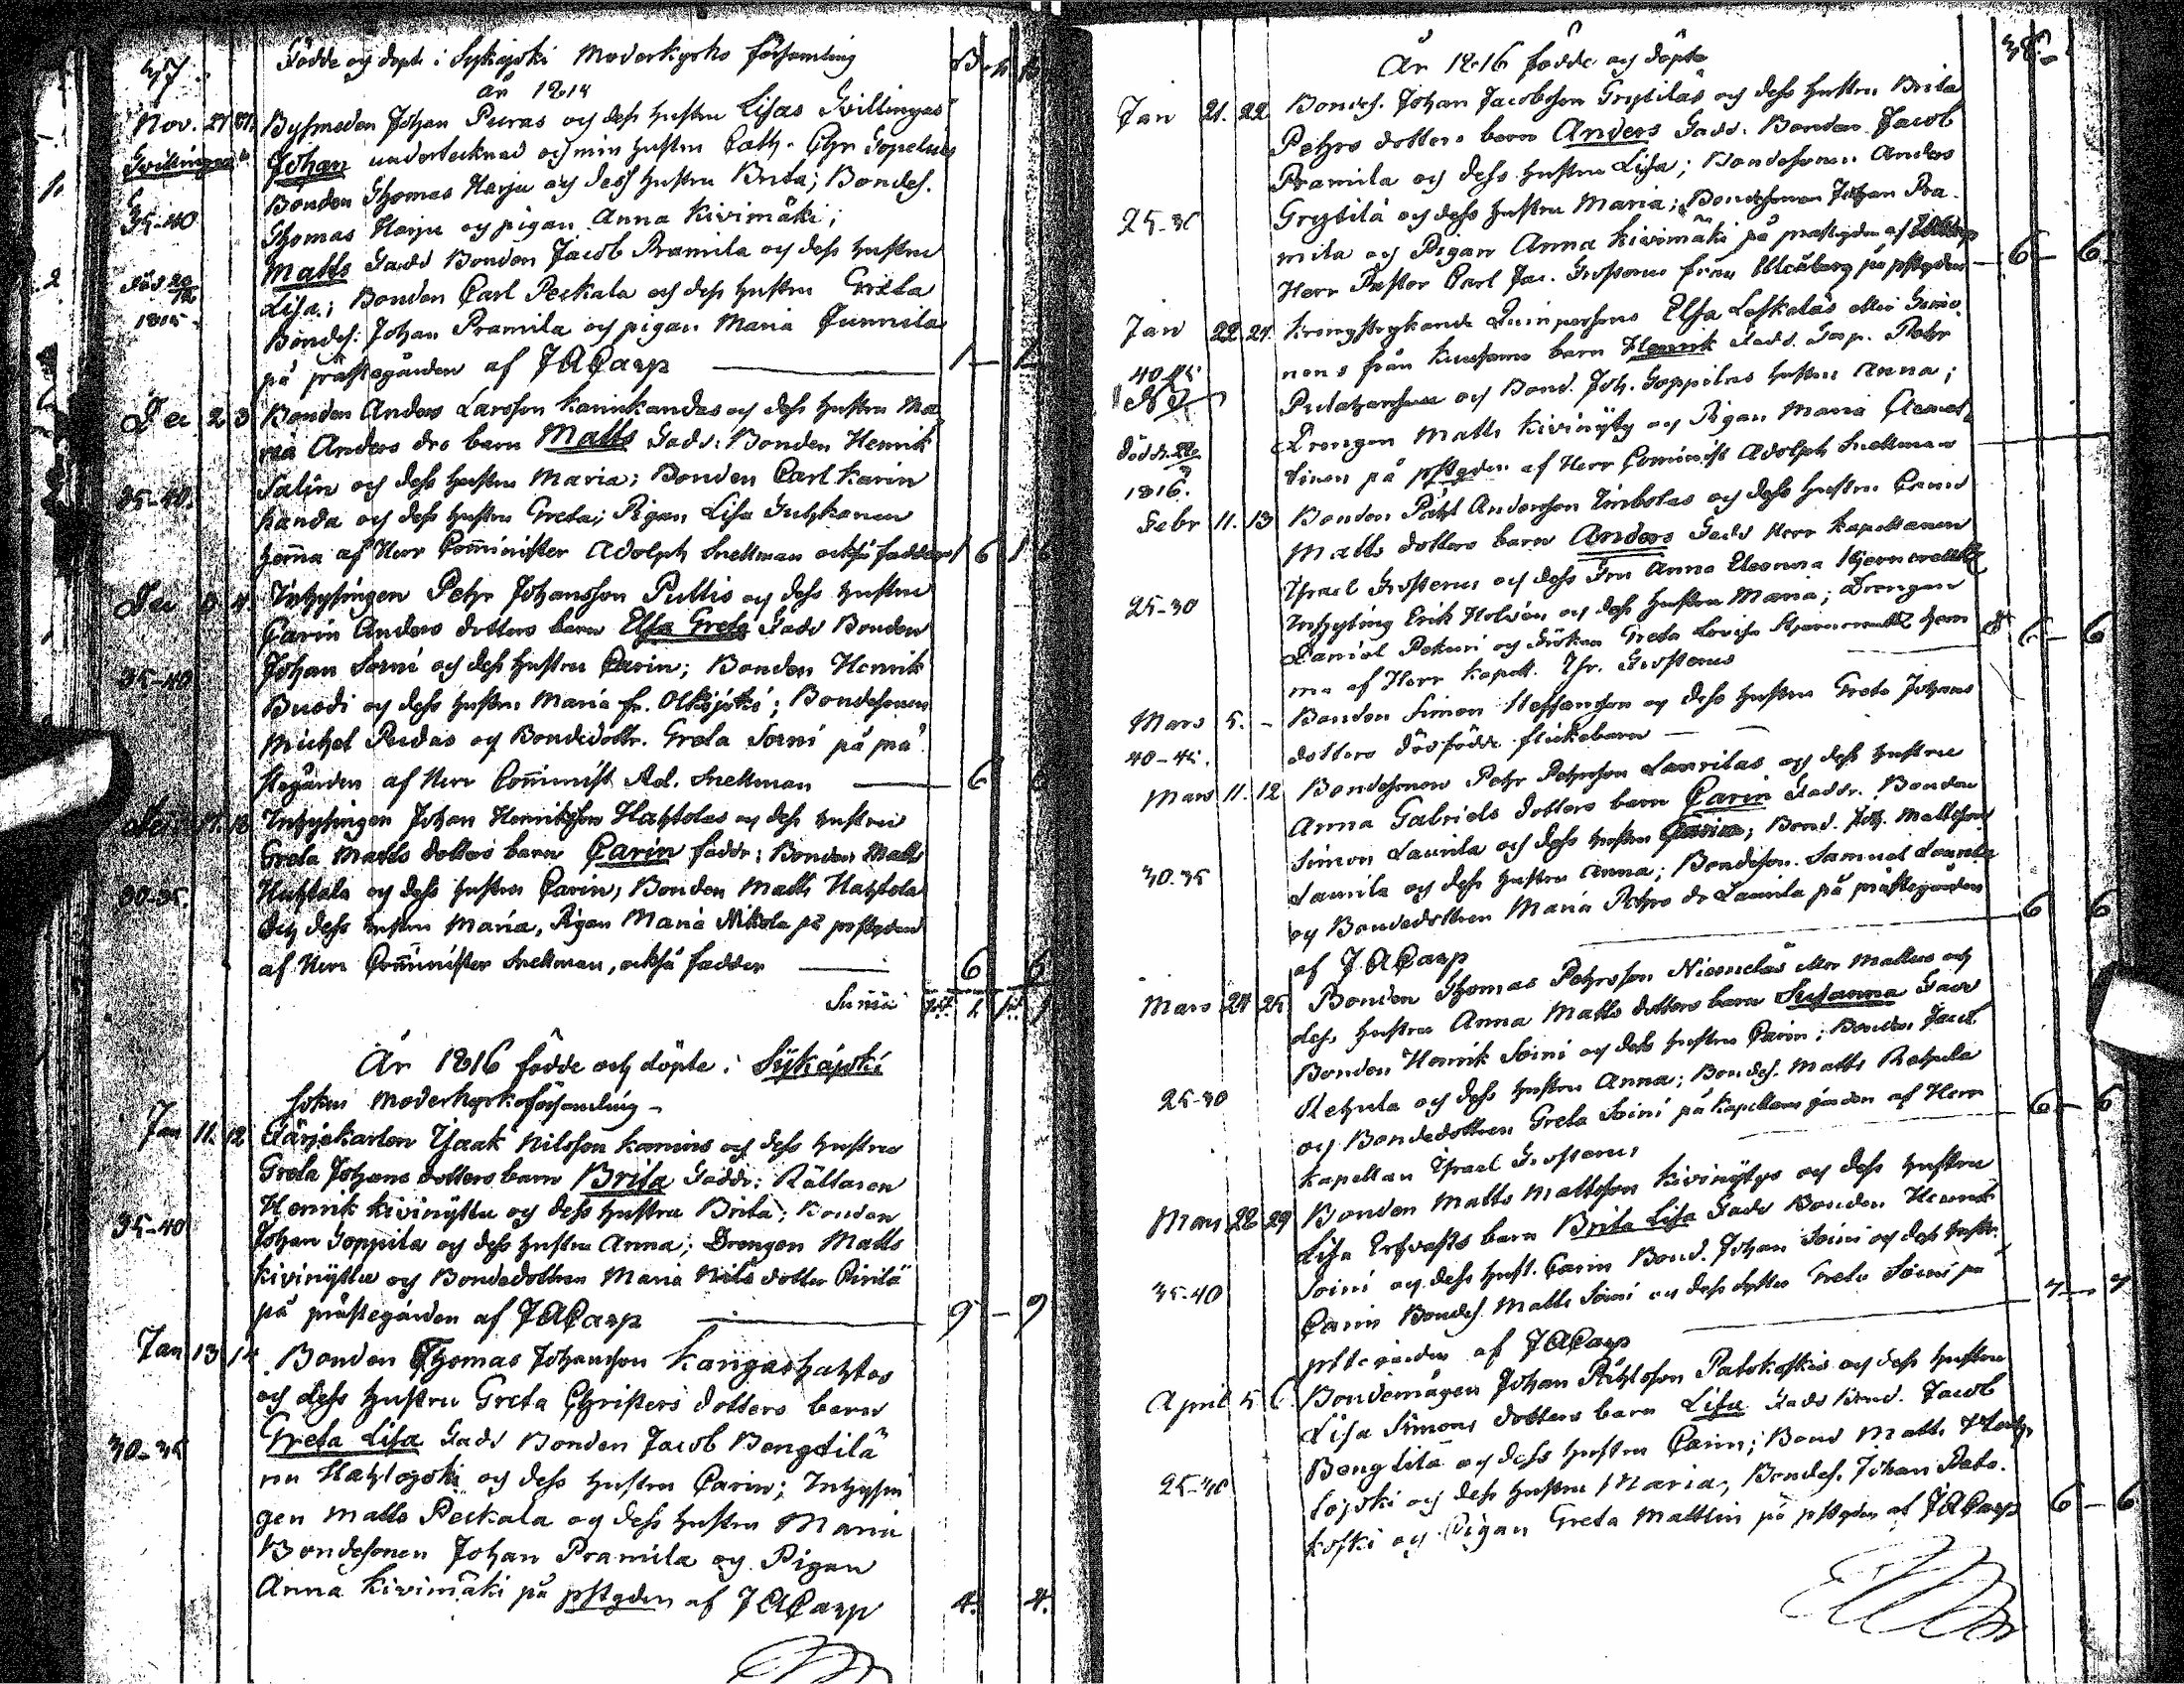 37
Födde och döpte i Sykajoki Moderkyrko församling
år 1815
Nov. 27 27. Bysmeden Johan Puras och dess hustru Lisas Tvillingar
Tvillingar Johan undertecknad och min hustru Cath. Chr. Topelius
Bonden Thomas Harju och dess hustru Brita; Bondes.
35-40 Thomas Harju och pigan Anna Kivimäki;
Matts Fadd Bonden Jacob Pramila och dess hustru
Död 20/12 1815. Lisa; Bonden Carl Peckala och dess hustru Greta
Bondes. Johan Pramila och pigan Maria Junnila
på prästegården af J A Carp 1 — 1
Dec 2 3 Bonden Anders Larsson Karinkandas och dess hustru Ma
ria Anders drs barn Matts Fadd: Bonden Henrik
Salin och dess hustru Maria; Bonden Carl Karin
35-40. kanda och dess hustru Greta; Pigan Lisa
hemma af Herr Comminister Adolph Snellman också fadder 1 6 1 6
Dec 3 4. Inhysingen Pehr Johansson Pullis och dess hustru
Carin Anders dotters barn Elsa Greta Fadd Bonden
Johan Sorni och dess hustru Carin; Bonden Henrik
35-40 Buodi och dess hustru Maria fr. Olkijoki; Bondesonen
Michel Pudas och Bondedottr. Greta Sorni på prä
stegården af Herr Comminist Ad. Snellman — 6 6
Dec 17. 18 Inhysingen Johan Henriksson Hahtolas och dess hustru
Greta Matts dotters barn Carin faddr: Bonden Matts
30-35. Huhtala och dess hustru Carin; Bonden Matts Hahtola
och dess hustru Maria, Pigan Maria Nikola på prstgden
af Herr Comminister Snellman, också fadder — 6 6
Summa 1 1
År 1816 födde och döpte i Sykajoki
sokns Moderkyrkoförsamling
Jan 11. 12 Färjekarlen Isaak Nilsson Kamins och dess hustru
Greta Johans dotters barn Brita Faddr: Rättaren
Henrik Kivinyttu och dess hustru Brita; Bonden
35-40 Johan Toppila och dess hustru Anna; Drengen Matts
Kivinyttu och Bondedottren Maria Nils dotter Pirilä
på prästegården af J A Carp — 9 — 9
Jan 13 14 Bonden Thomas Johansson Kangashahtos
och dess hustru Greta Christers dotters barn
Greta Lisa Fadd Bonden Jacob Bengtilä
30-35 och dess hustru Carin; Inhysin
gen Matts Peckala og dess hustru Maria
Bondesonen Johan Pramila og Pigan
Anna Kivimäki på pstgden af J A Carp 4. 4.
38
År 1816 födde och döpte
Jan 21. 22 Bondes. Johan Jacobsson Grytiläs och dess hustru Brita
Pehrs dotters barn Anders Fadd. Bonden Jacob
Pramila och dess hustru Lisa; Bondesonen Anders
25-30 Grytilä och dess hustru Maria; Bondesonen Johan Pra-
mila och Pigan Anna Kivimäki på prastgden af
Herr Pastor Carl Jac. Frosterus från Uleåborg på pstgden — 6 — 6
Jan 22 24. Kringstrykande Qvinpersons Elsa Leskeläs eller
nens från Kuusamo barn Henrik Fadd. Pehr
40-45 och Bond. Joh. Toppilas hustru Anna;
Drengen Matts Kivinyty och Pigan Maria
Död d. 1816. på pstgden af Herr Cominist Adolph Snellman
Febr 11. 13 Bonden Påhl Andersson Timbolas och dess hustru Carin
Matts dotters barn Anders Fadd Herr Kapellanen
Israel Frosterus och dess Fru Anna Eleonora
25-30 Inhysing Erik och dess hustru Maria; Drengen
Daniel Pokuri og Fröken Greta Lovisa hem
ma af Herr Kapell. Isr. Frosterus 6 — 6
Mars 5. - Bonden Simon Steffansson og dess hustru Greta Johans
40-45. dotters dödfödde flickebarn —
Mars 11. 12 Bondesonen Pehr Pehrsson Laurilas och dess hustru
Anna Gabriels dotters barn Carin Faddr. Bonden
Simon Laurila och dess hustru Carin; Bond. Joh. Mattsson
30.35 Laurila och dess hustru Anna; Bondeson. Samuel Laurila
og Bondedottren Maria Pehrs dr Laurila på prästegården
af J. A Carp 6 6
Mars 24 25 Bonden Thomas Pehrsson Niemeläs eller Mattus och
dess hustru Anna Matts dotters barn Susanna Fadd
Bonden Henrik Soini og dess hustru Carin; Bonden Jacob
25-30 Rehula och dess hustru Anna; Bondes. Matts Rehula
og Bondedottren Greta Soini på Kapellans gården af Herr
Kapellan Israel Frosterus 6 — 6
Mars 28 29 Bonden Matts Mattsson Kivinyttys och dess hustru
Lisa barn Brita Lisa Fadd Bonden Henrik
Soini og dess hust. Carin Bond. Johan Soini og dess hustr.
35-40 Carin Bondes. Matts Soini og dess syster Greta Soini på
af J A Carp 7 — 7
April 5 6. Bondemågen Johan Påhlsson Patokoskis og dess hustru
Lisa Simons dotters barn Lisa Fadd Bond. Jacob
Bengtilä og dess hustru Carin; Bond Matts Hahto
25-30 lojoki och dess hustru Maria; Bondes. Johan Pato-
koski og Pigan Greta Mattlin på pstgden af J A Carp 6 — 6